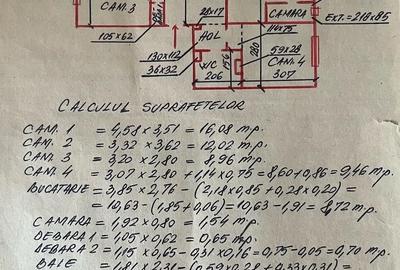 CAM. 3
105x62
28x17
HOL
130x112
36x32
W/C
206
156
280
114x75
CAMARA
59x28
CAM. 4
307
EXT.=218x85
CALCULUL SUPRAFETELOR
CAM. 1 = 4,58x3,51 = 16,08 m.p.
CAM. 2 = 3,32 x 3,62 = 12,02 m.p.
CAM. 3 = 3,20 x 2,80 = 8,96 m.p.
CAM. 4 = 3,07 x 2,80 + 1,14x0,75 = 8,60+0,86 = 9,46 m.p.
BUCATARIE = 3,85 x 2,76 - (2,18x0,85 + 0,28x0,20) =
= 10,63 - (1,85+0,06) = 10,63 - 1,91 = 8,72 m.p.
CAMARA = 1,92 x 0,80 = 1,54 m.p.
DEBARA 1 = 1,05 x 0,62 = 0,65 m.p.
DEBARA 2 = 1,15 x 0,65 - 0,31 x 0,16 = 0,75 - 0,05 = 0,70 m.p.
BAIE = 1,81 x 2,31 - (0,59x0,28 + 0,33x0,31) =